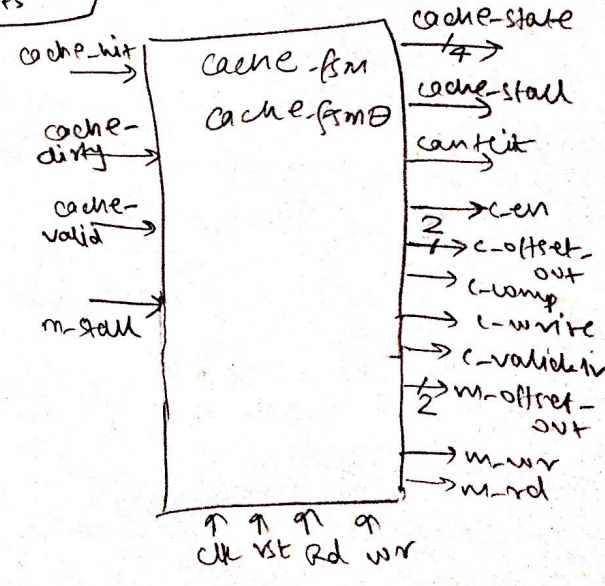 cache_hit
cache-
dirty
cache-
valid
m-stall
cache-fsm
cache-fsm0
cache-state
4
cache-stall
c-en
2
c-offset-
out
c-comp
c-write
c-valid-in
m-offset-
2
out
m-wr
m-rd
clk rst Rd wr